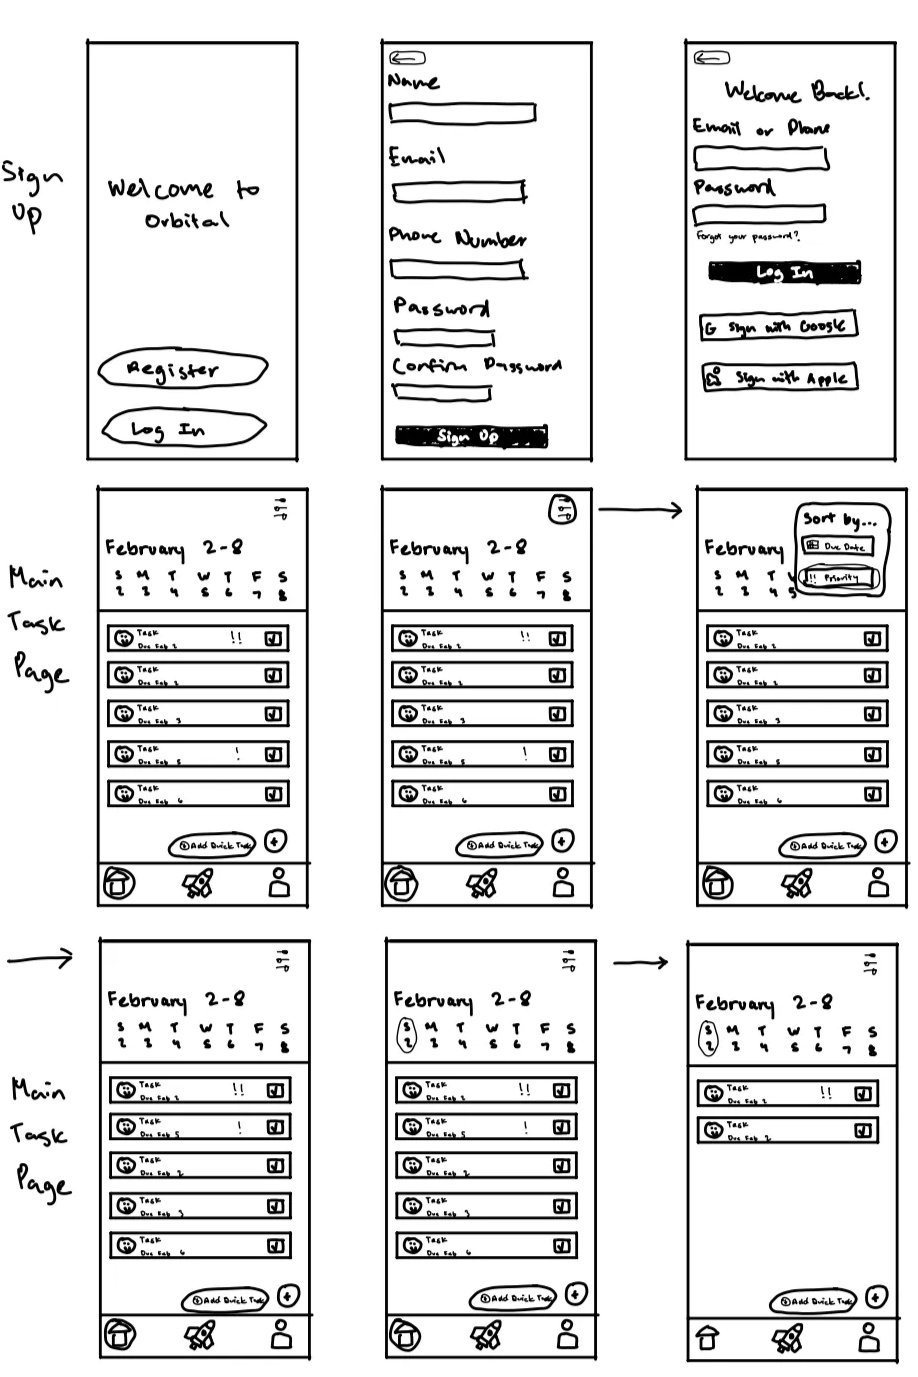 Sign
Up
Welcome to
Orbital
Register
Log In
Name
Email
Phone Number
Password
Confirm Password
Sign Up
Welcome Back!
Email or Phone
Password
Forgot your password?
Log In
G Sign with Google
Sign with Apple
Main
Task
Page
February 2-8
S M T W T F S
2 3 4 5 6 7 8
Task !!
Due Feb 2
Task
Due Feb 2
Task
Due Feb 3
Task !
Due Feb 5
Task
Due Feb 6
+ Add Quick Task +
February 2-8
S M T W T F S
2 3 4 5 6 7 8
Task !!
Due Feb 2
Task
Due Feb 2
Task
Due Feb 3
Task !
Due Feb 5
Task
Due Feb 6
+ Add Quick Task +
Sort by...
Due Date
!! Priority
February
S M T W
2 3 4 5
Task
Due Feb 2
Task
Due Feb 2
Task
Due Feb 3
Task
Due Feb 5
Task
Due Feb 6
+ Add Quick Task +
Main
Task
Page
February 2-8
S M T W T F S
2 3 4 5 6 7 8
Task !!
Due Feb 2
Task !
Due Feb 5
Task
Due Feb 2
Task
Due Feb 3
Task
Due Feb 6
+ Add Quick Task +
February 2-8
S M T W T F S
2 3 4 5 6 7 8
Task !!
Due Feb 2
Task !
Due Feb 5
Task
Due Feb 2
Task
Due Feb 3
Task
Due Feb 6
+ Add Quick Task +
February 2-8
S M T W T F S
2 3 4 5 6 7 8
Task !!
Due Feb 2
Task
Due Feb 2
+ Add Quick Task +